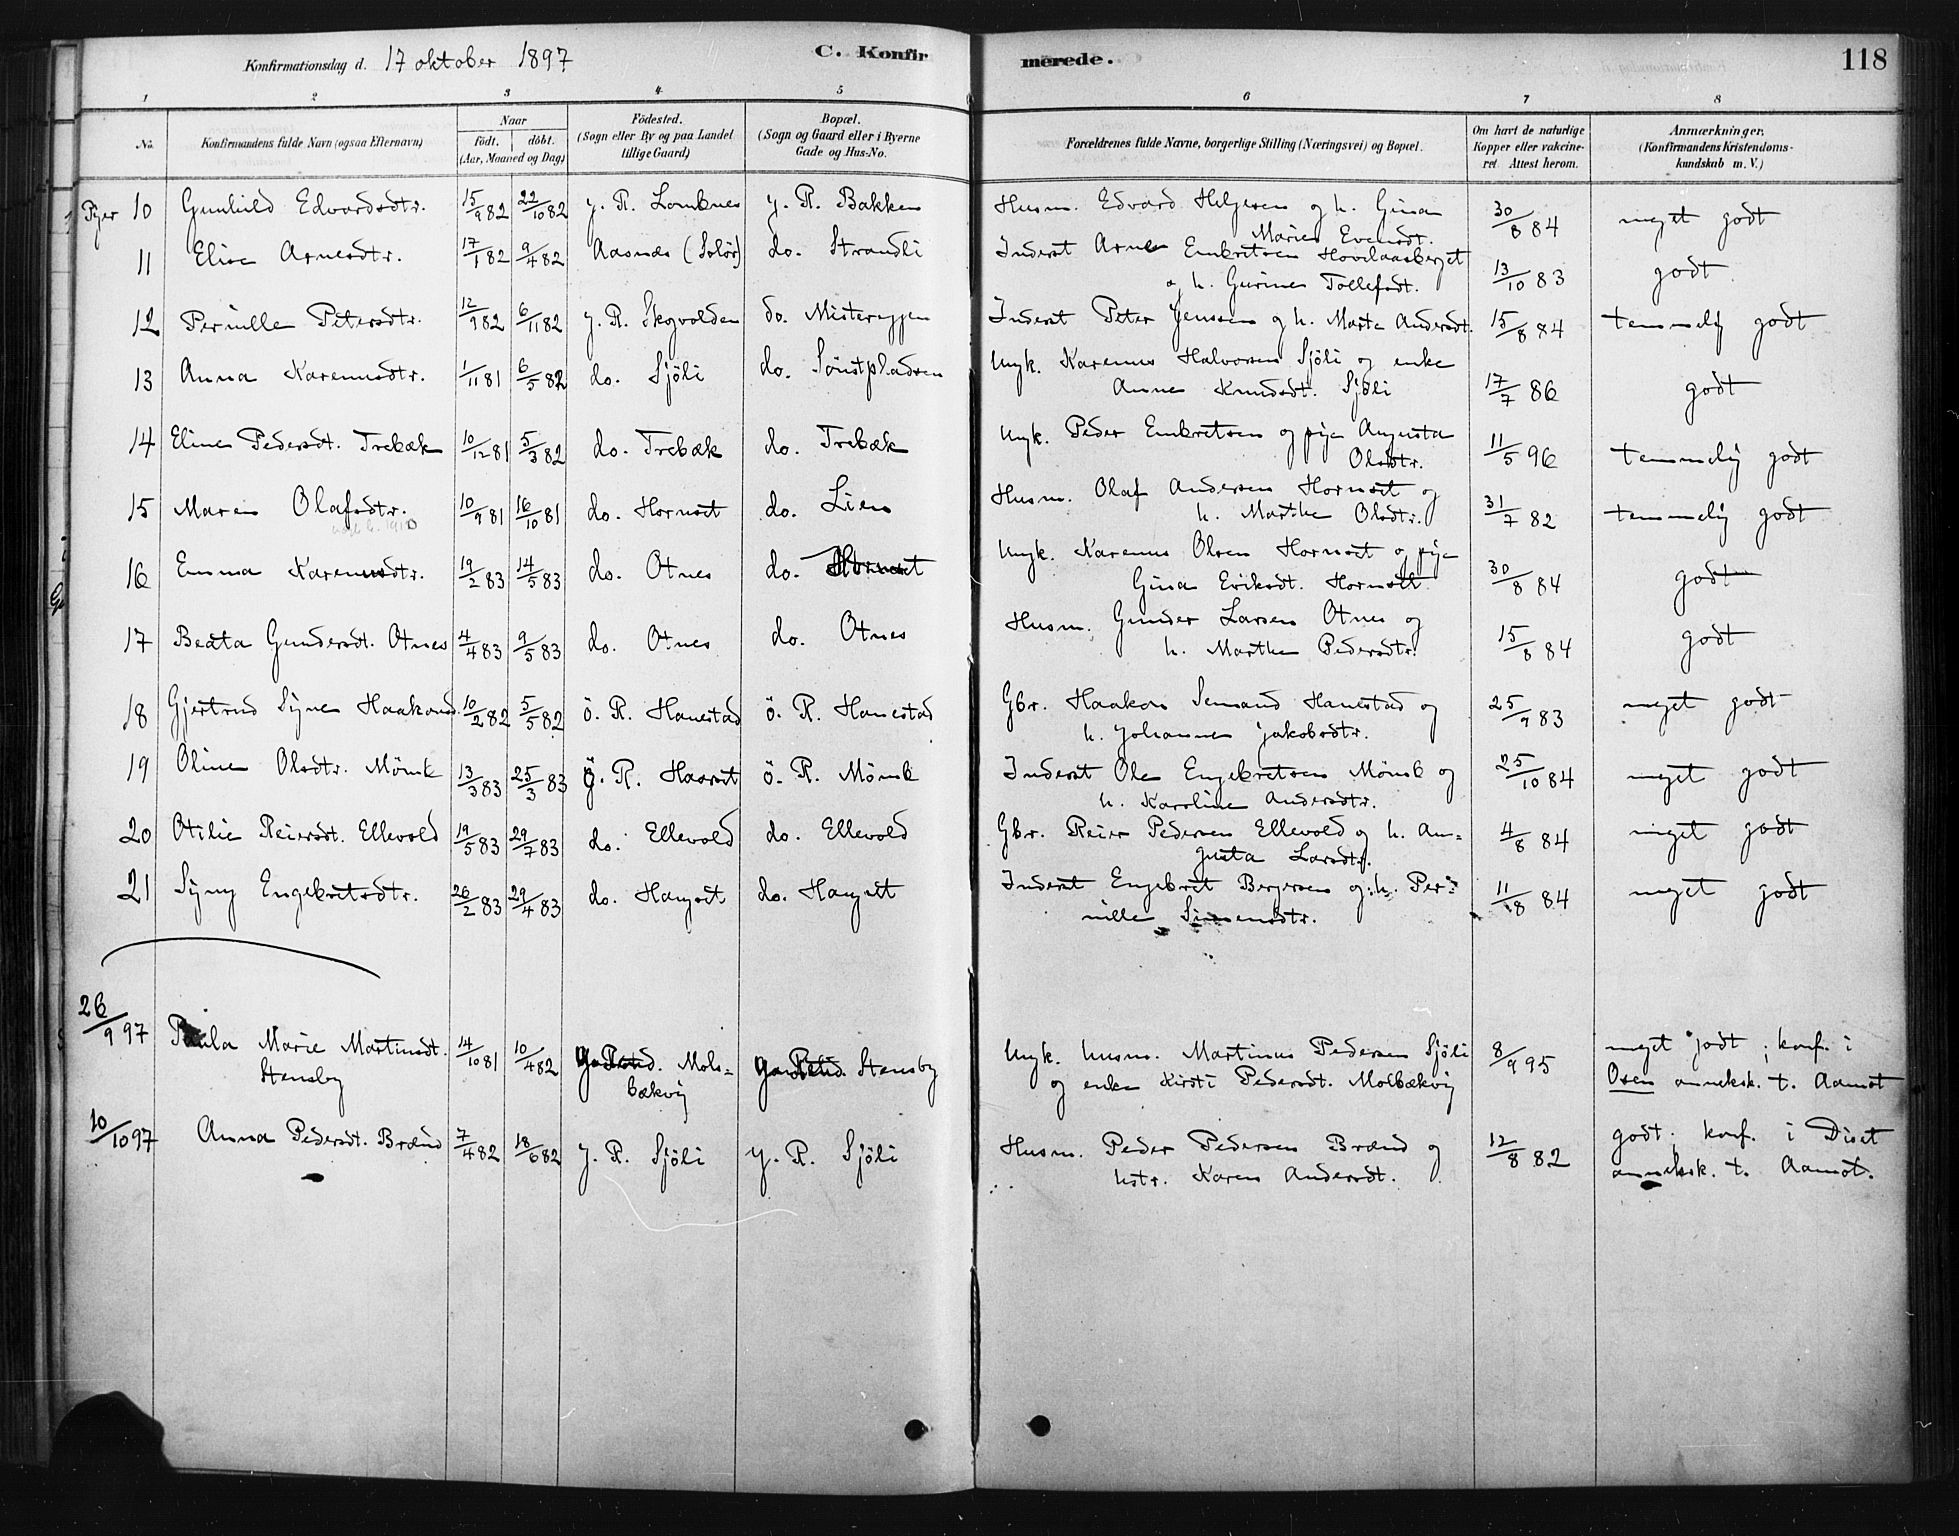 Konfirmationsdag d. 17 oktober 1897 C. Konfirmerede. 118
1 2 3 4 5 6 7 8
No. Konfirmandens fulde Navn (ogsaa Efternavn) Naar födt. döbt. (Aar, Maaned og Dag) Födested. (Sogn eller By og paa Landet tillige Gaard) Bopæl. (Sogn og Gaard eller i Byerne Gade og Hus-No. Forældrenes fulde Navne, borgerlige Stilling (Næringsvei) og Bopæl. Om havt de naturlige Kopper eller vakcineret. Attest herom. Anmærkninger. (Konfirmandens Kristendomskundskab m. V.)
Piger 10 Gunhild Edvardsdtr. 15/9 82 22/10 82 y. R. Lomknes y. R. Bakken Husm. Edvard Helgesen og h. Gina Marie Evensdt. 30/8 84 meget godt
11 Elise Arnesdtr. 17/1 82 9/4 82 Aasnes (Solör) do. Strandli Inderst Arne Embretsen Hovelaasberget og h. Gurine Tollefsdt. 13/10 83 godt
12 Pernille Petersdtr. 12/9 82 6/11 82 y. R. Skogvolden do. Misterøggen Inderst Peter Jenssen og h. Marte Andersdt. 15/8 84 temmelig godt
13 Anna Karenusdtr. 1/11 81 6/5 82 do. Sjöli do. Sönstpladsen Ungk. Karenus Halvorsen Sjöli og enke Anne Knudsdt. Sjöli 17/7 86 godt
14 Eline Pedersdt. Trebæk 10/12 81 5/3 82 do. Trebæk do. Trebæk Ungk. Peder Embretsen og pige Augusta Olsdtr. 11/5 96 temmelig godt
15 Maren Olafsdtr. 10/9 81 16/10 81 do. Hornset do. Lien Husm. Olaf Andersen Hornset og h. Marthe Olsdtr. 31/7 82 temmelig godt
16 Emma Karenusdtr. 19/2 83 14/5 83 do. Otnes do. Hornset Ungk. Karenus Olsen Hornset og pige Gina Eriksdt. Hornset 30/8 84 godt
17 Beata Gundersdt. Otnes 4/4 83 9/5 83 do. Otnes do. Otnes Husm. Gunder Larsen Otnes og h. Marthe Pedersdtr. 15/8 84 godt
18 Gjertrud Signe Haakonsd. 10/2 82 5/5 82 ö. R. Hanestad ö. R. Hanestad Gbr. Haakon Semand Hanestad og h. Johanne Jakobsdtr. 25/9 83 meget godt
19 Oline Olsdtr. Mömb 13/3 83 25/3 83 ö. R. Haarset ö. R. Mömb Inderst Ole Engebretsen Mömb og h. Karoline Andersdtr. 25/10 84 meget godt
20 Otilie Reiersdt. Ellevold 19/5 83 29/7 83 do. Ellevold do. Ellevold Gbr. Reier Pedersen Ellevold og h. Augusta Larsdtr. 4/8 84 meget godt
21 Signy Engebretsdtr. 26/2 83 29/4 83 do. Haugset do. Haugset Inderst Engebret Bergersen og h. Pernille Simensdtr. 11/8 84 meget godt
26/9 97 Paula Marie Martinusdt. Stensby 14/10 81 10/4 82 Molsbækvig Stensby Ungk. husm. Martinus Pedersen Sjöli og enke Kirsti Pedersdt. Molbækvig 8/9 95 meget godt; konf. i Osen anneksk. t. Aamot
10/10 97 Anna Pedersdt. Brænd 7/4 82 18/6 82 y. R. Sjöli y. R. Sjöli Husm. Peder Pedersen Brænd og hstr. Karen Andersdt. 12/8 82 godt. konf. i Diset anneksk. t. Aamot.